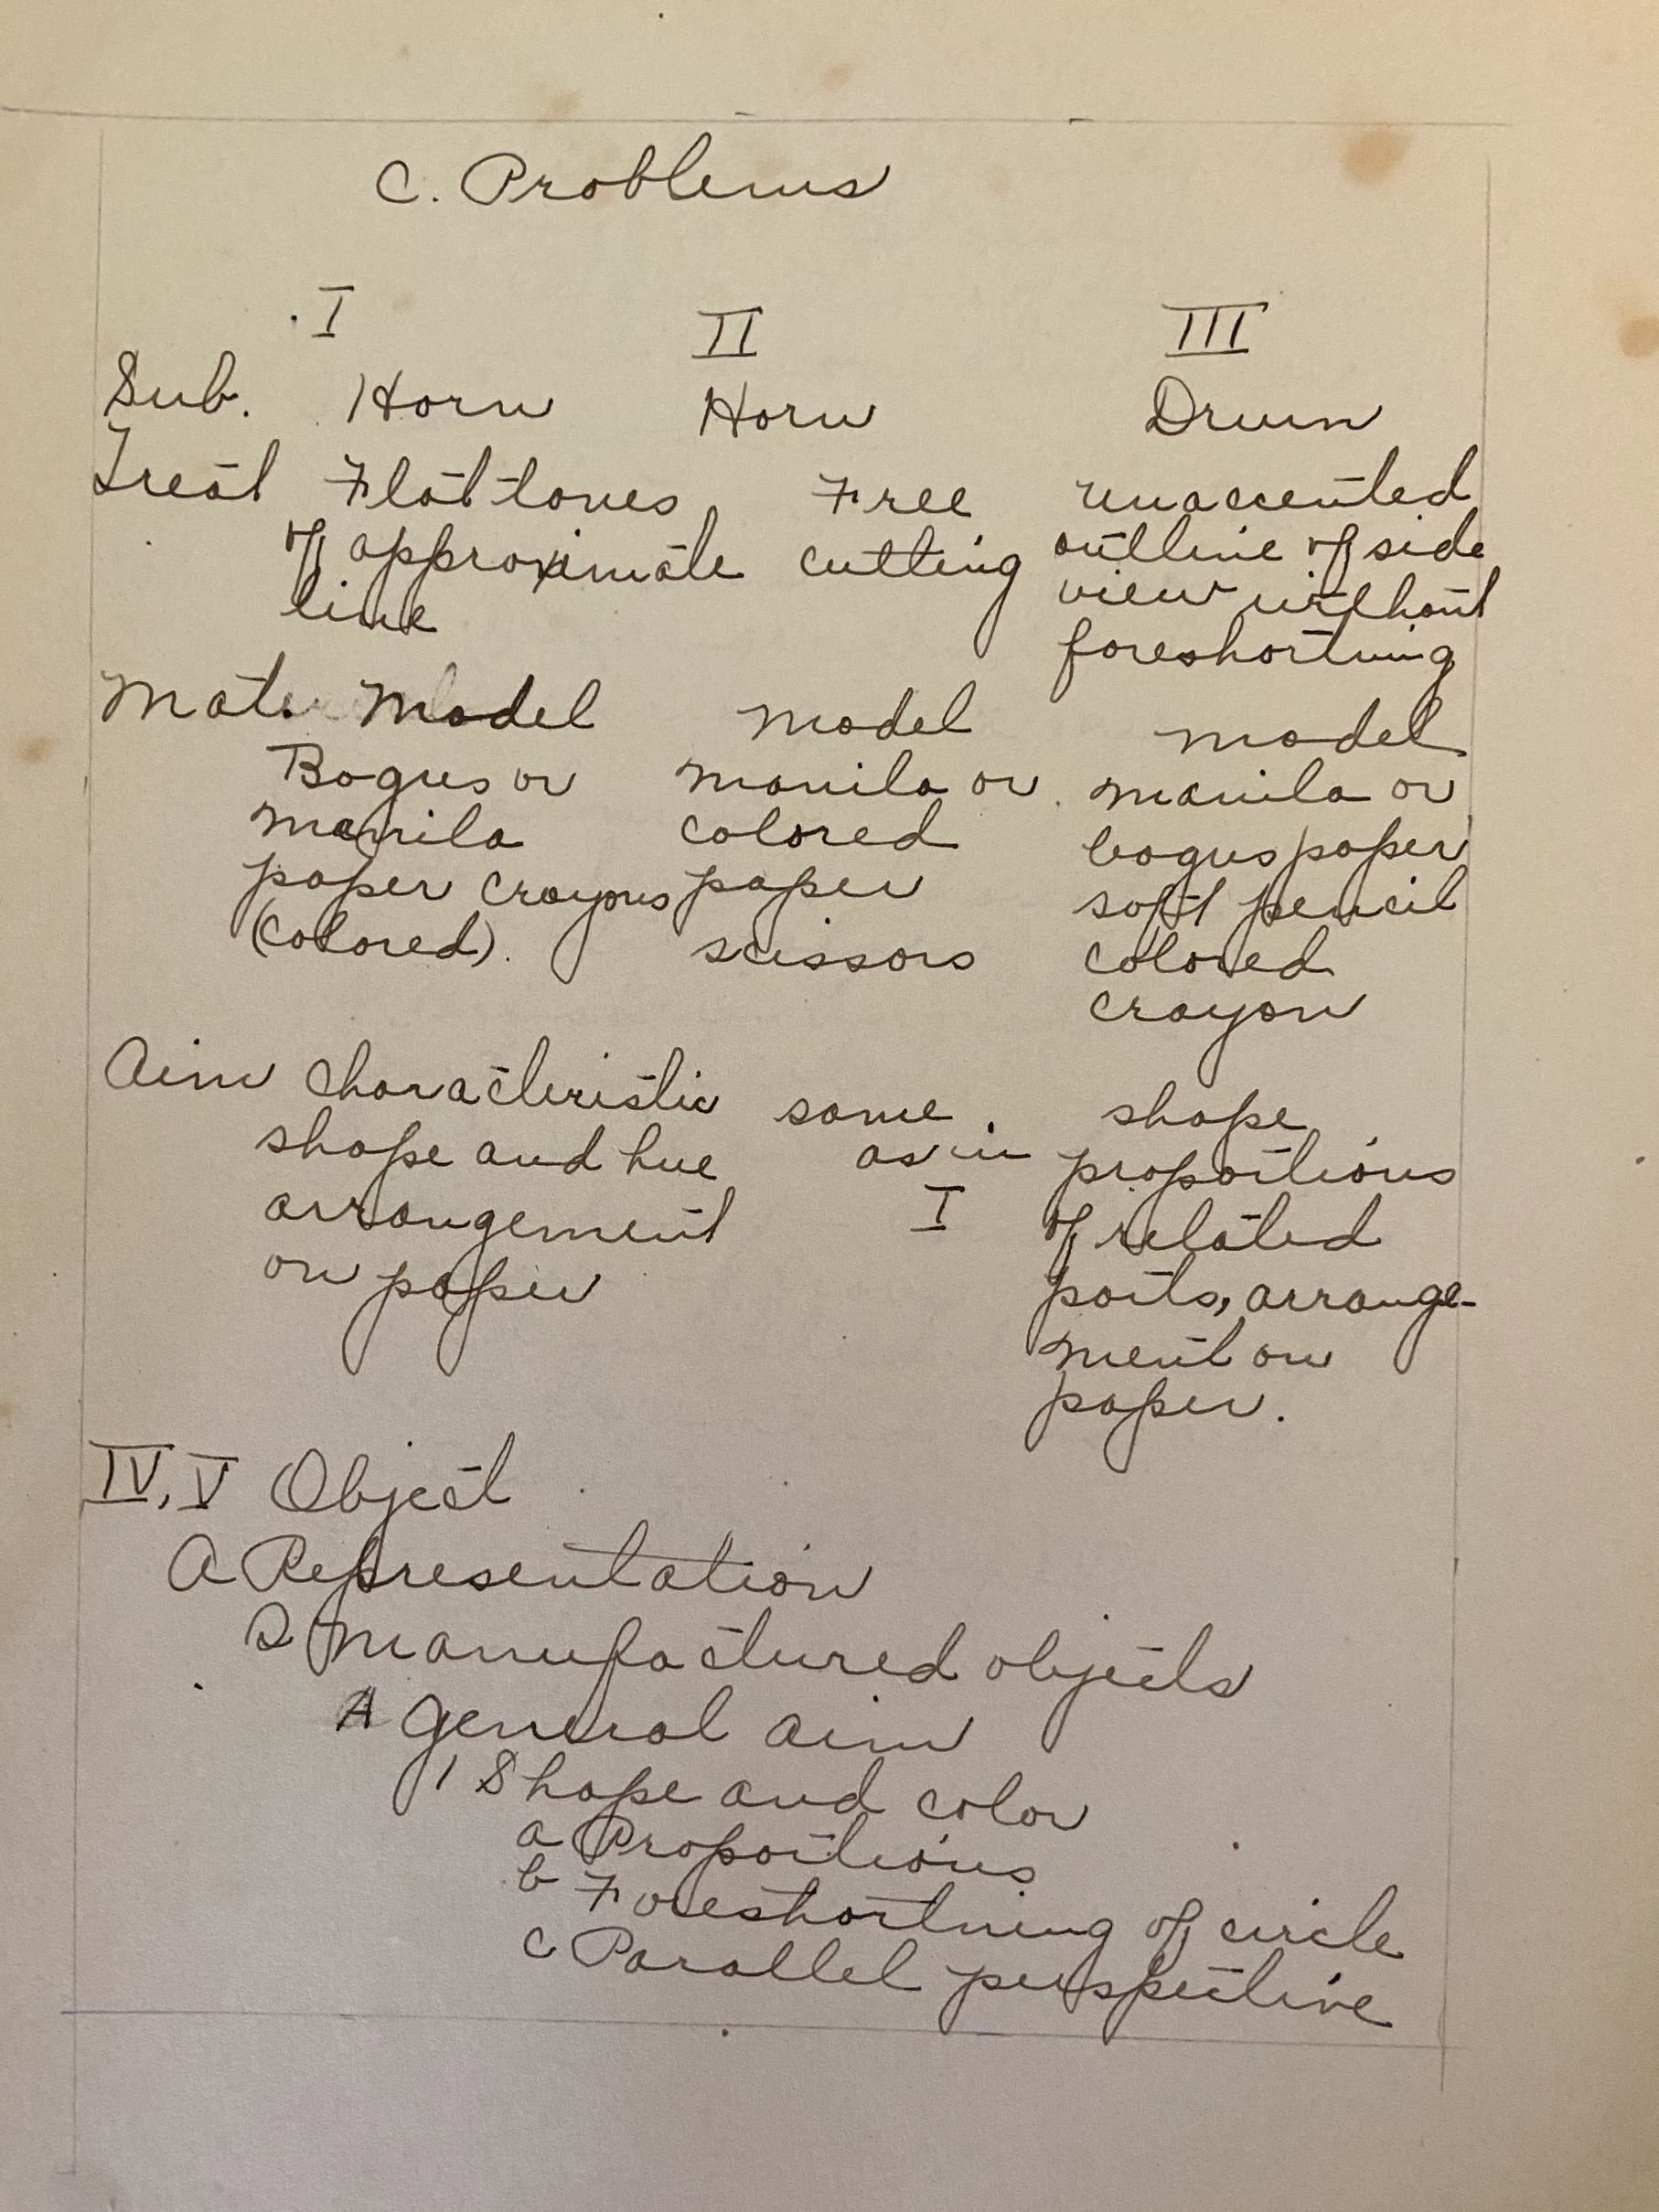 C. Problems
I II III
Sub. Horn Horn Drum
Treat Flat tones Free unaccented
of approximate cutting outline of side
line view without
foreshortning
Mat. Model model model
Bogus or manila or manila or
manila colored bogus paper
paper crayons paper soft pencil
(colored). scissors colored
crayon
Aim characteristic same shape
shape and hue as in proportions
arrangement I of related
on paper parts, arrange-
ment on
paper.
IV, V Object
A Representation
2 Manufactured objects
A General aim
1 Shape and color
a Proportions
b Foreshortning of circle
c Parallel perspective